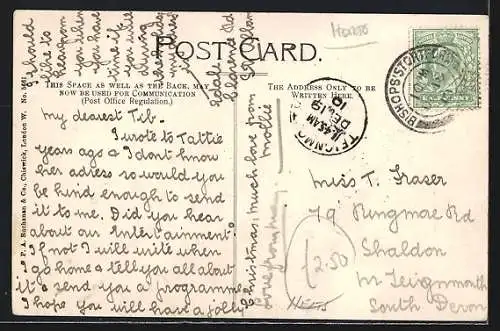 POST CARD.
THIS SPACE AS WELL AS THE BACK, MAY
NOW BE USED FOR COMMUNICATION
(Post Office Regulation.)
THE ADDRESS ONLY TO BE
WRITTEN HERE.
My dearest Tib.
I wrote to Tattie
years ago & I dont know
her adress so would you
be kind enough to send
it to me. Did you hear
about our Entertainment?
If not I will write when
I go home & tell you all about
it & send you a programme
I hope you will have a jolly
Christmas, much love from
Mollie
I should
like to
hear from
you when
you have
time if
you will
during
these
holidays
Clarence Rd
Miss T. Fraser
79 Ringmae Rd
Shaldon
Nr Teignmouth
South Devon
Herts
2.50
BISHOPS STORTFORD
TEIGNMO
11.45 AM
DE
10
F. A. Buchanan & Co., Chiswick, London W. No.